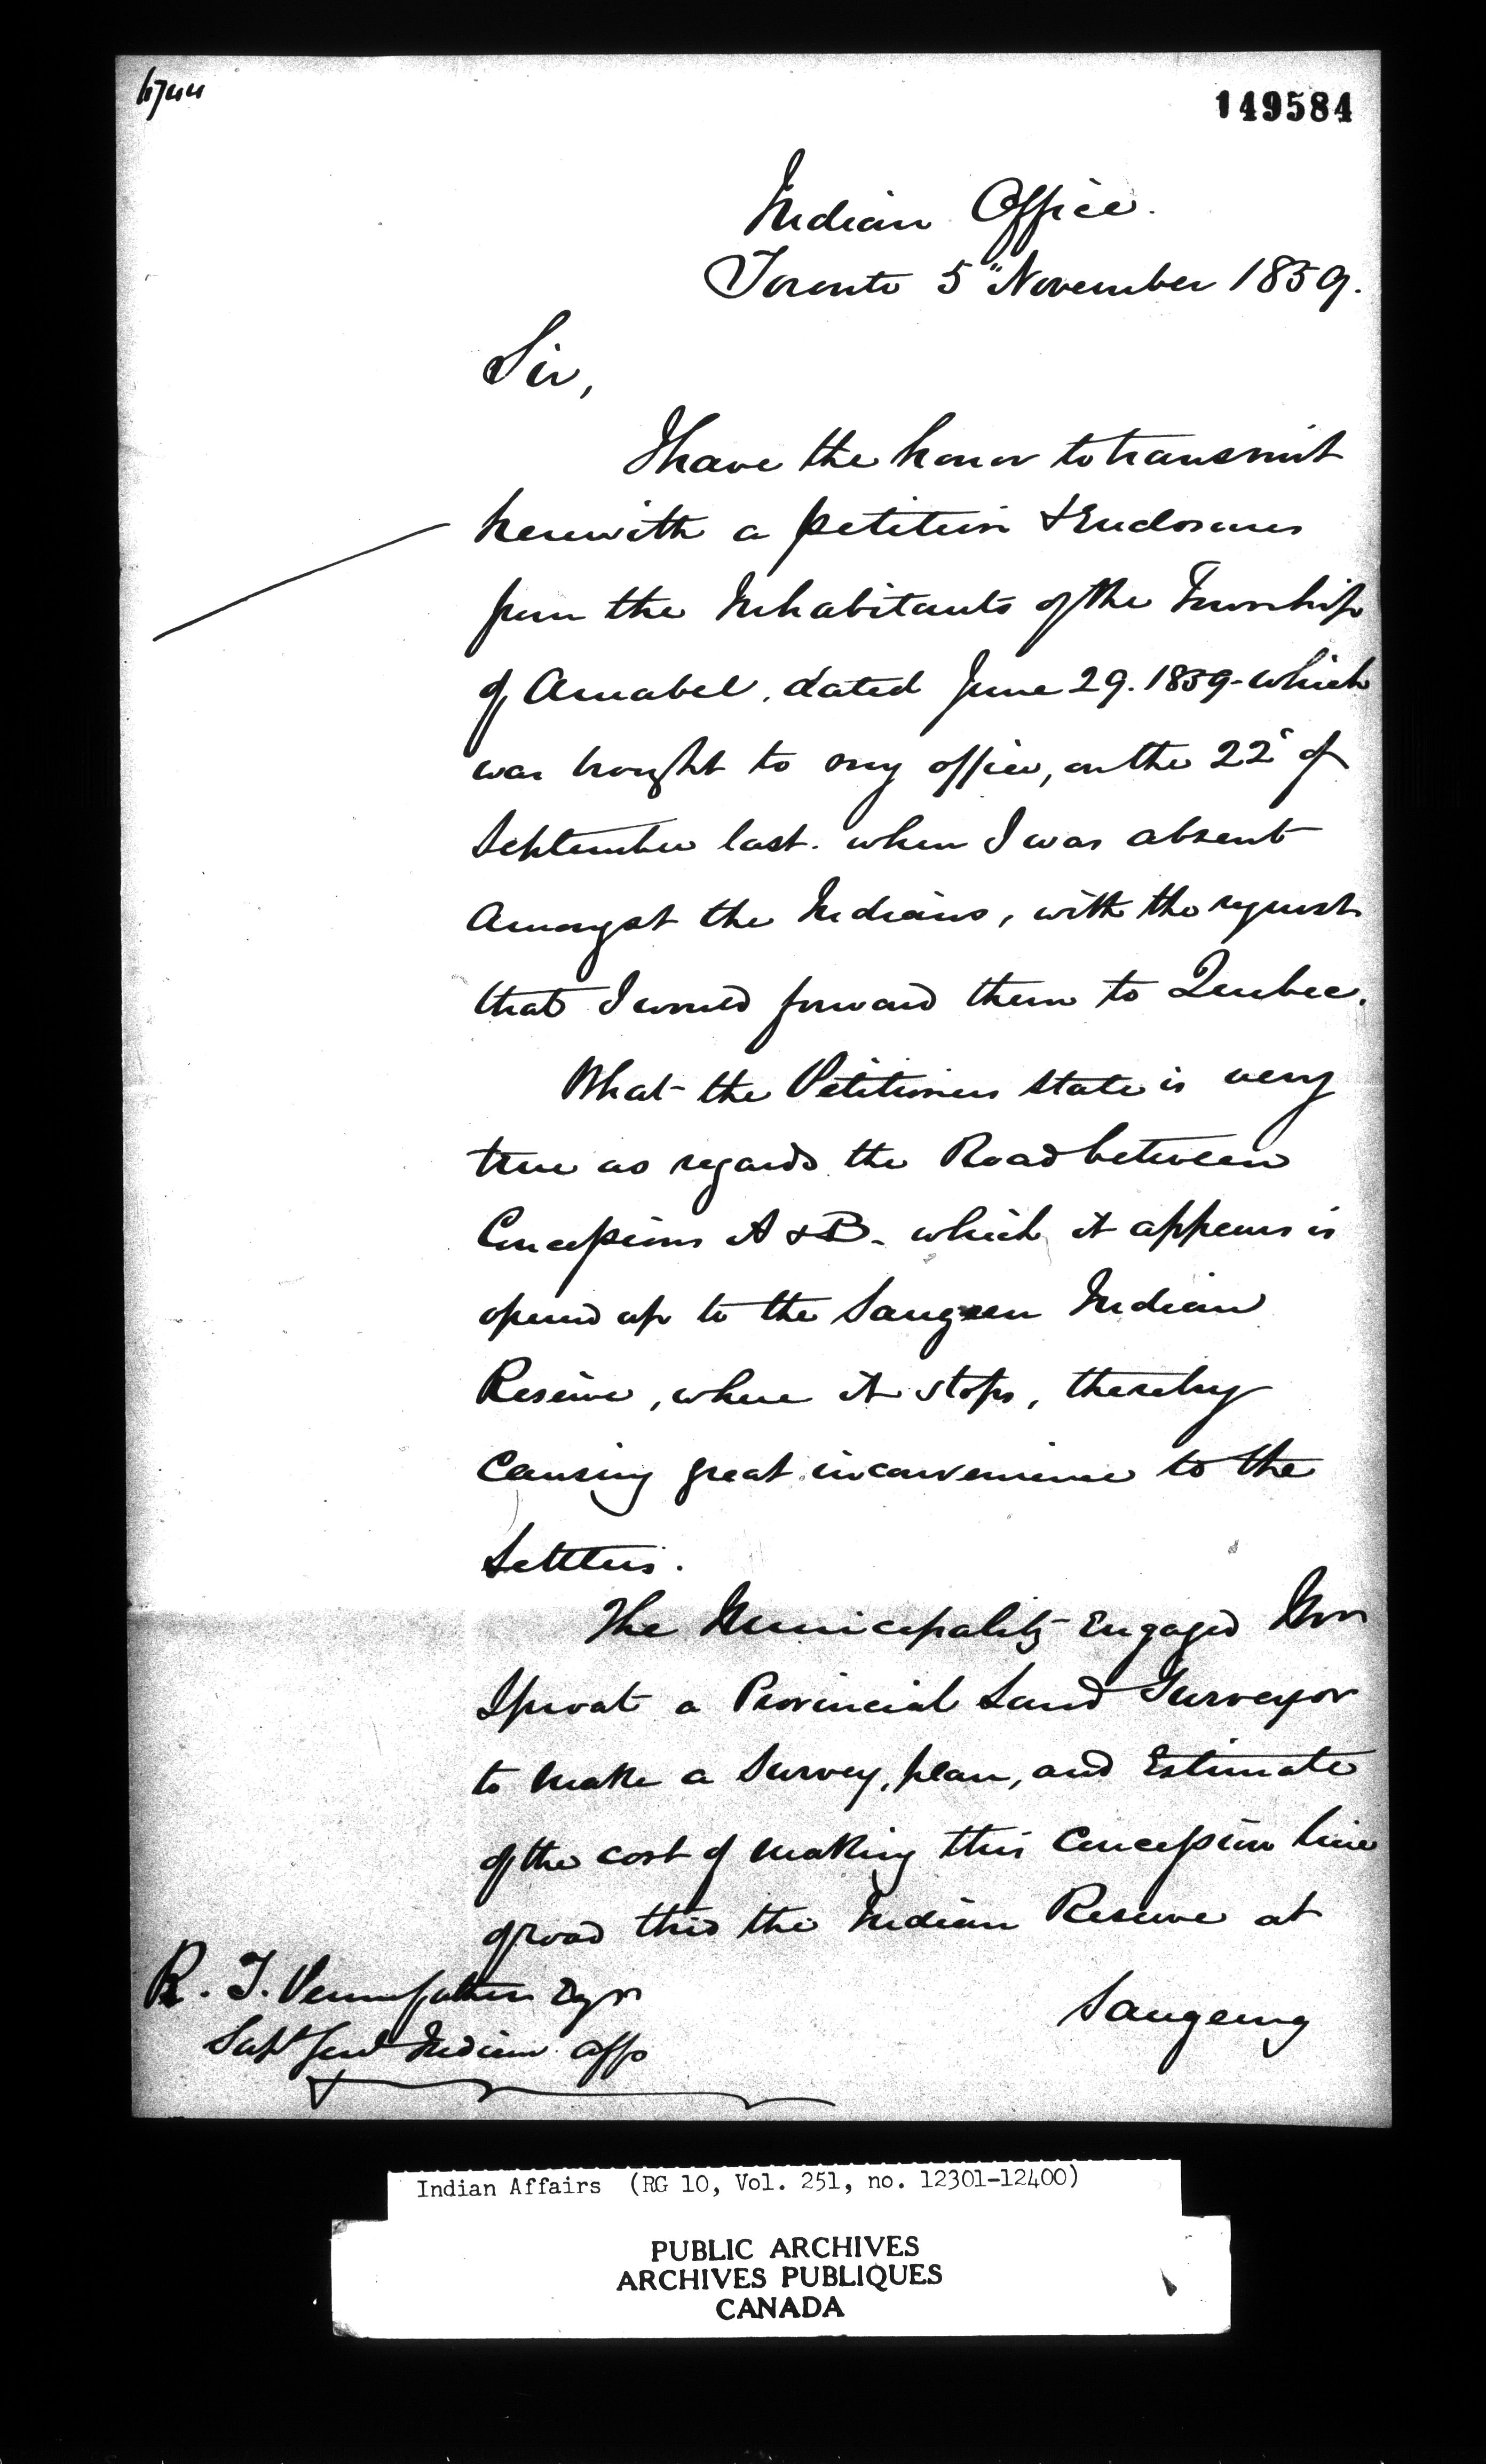 149584
Indian Office.
Toronto 5" November 1859.
Sir,
I have the honor to transmit
herewith a petition & Enclosures
from the Inhabitants of the Township
of Amabel, dated June 29. 1859 - which
was brought to my office, on the 22d of
September last. when I was absent
amongst the Indians, with the request
that I would forward them to Quebec.
What the Petitioners state is very
true as regards the Road between
Concessions A & B - which it appears is
opened up to the Saugeen Indian
Reserve, where it stops, thereby
causing great inconvenience to the
Settlers.
The Municipality Engaged Wm
Sproat a Provincial Land Surveyor
to make a Survey, plan, and Estimate
of the cost of making this Concession line
of road thro the Indian Reserve at
Saugeeng
R. T. Pennefather Esqr
Supt Genl Indian Affs
Indian Affairs (RG 10, Vol. 251, no. 12301-12400)
PUBLIC ARCHIVES
ARCHIVES PUBLIQUES
CANADA